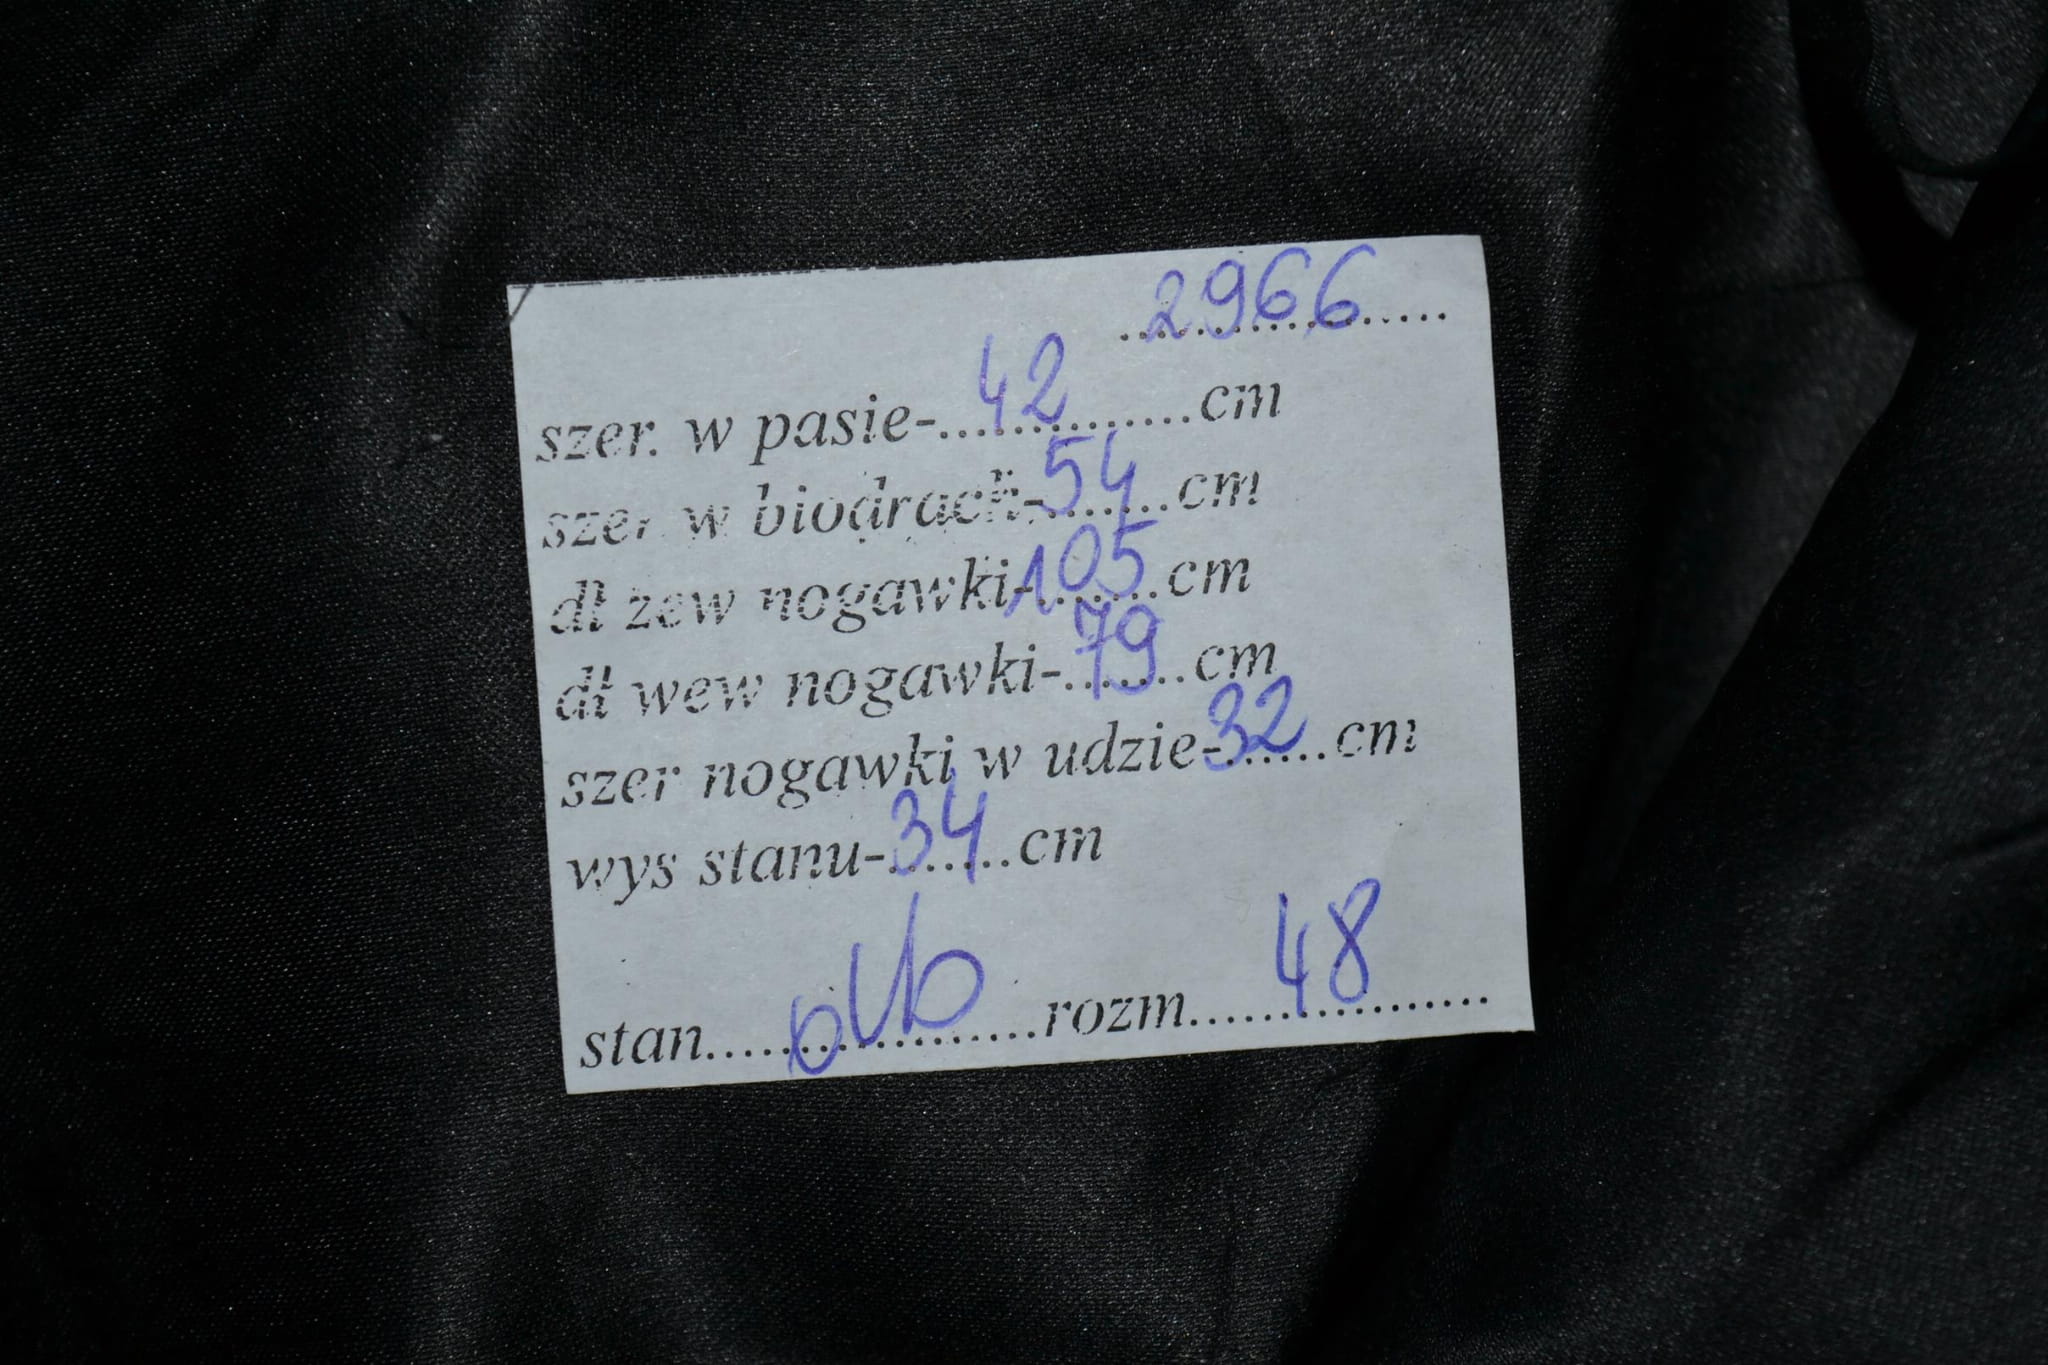 ..................2966......
szer. w pasie-...42.........cm
szer w biodrach-54........cm
dł zew nogawki-105.......cm
dł wew nogawki-.79......cm
szer nogawki w udzie-32......cm
wys stanu-34......cm
stan....................rozm.....48............